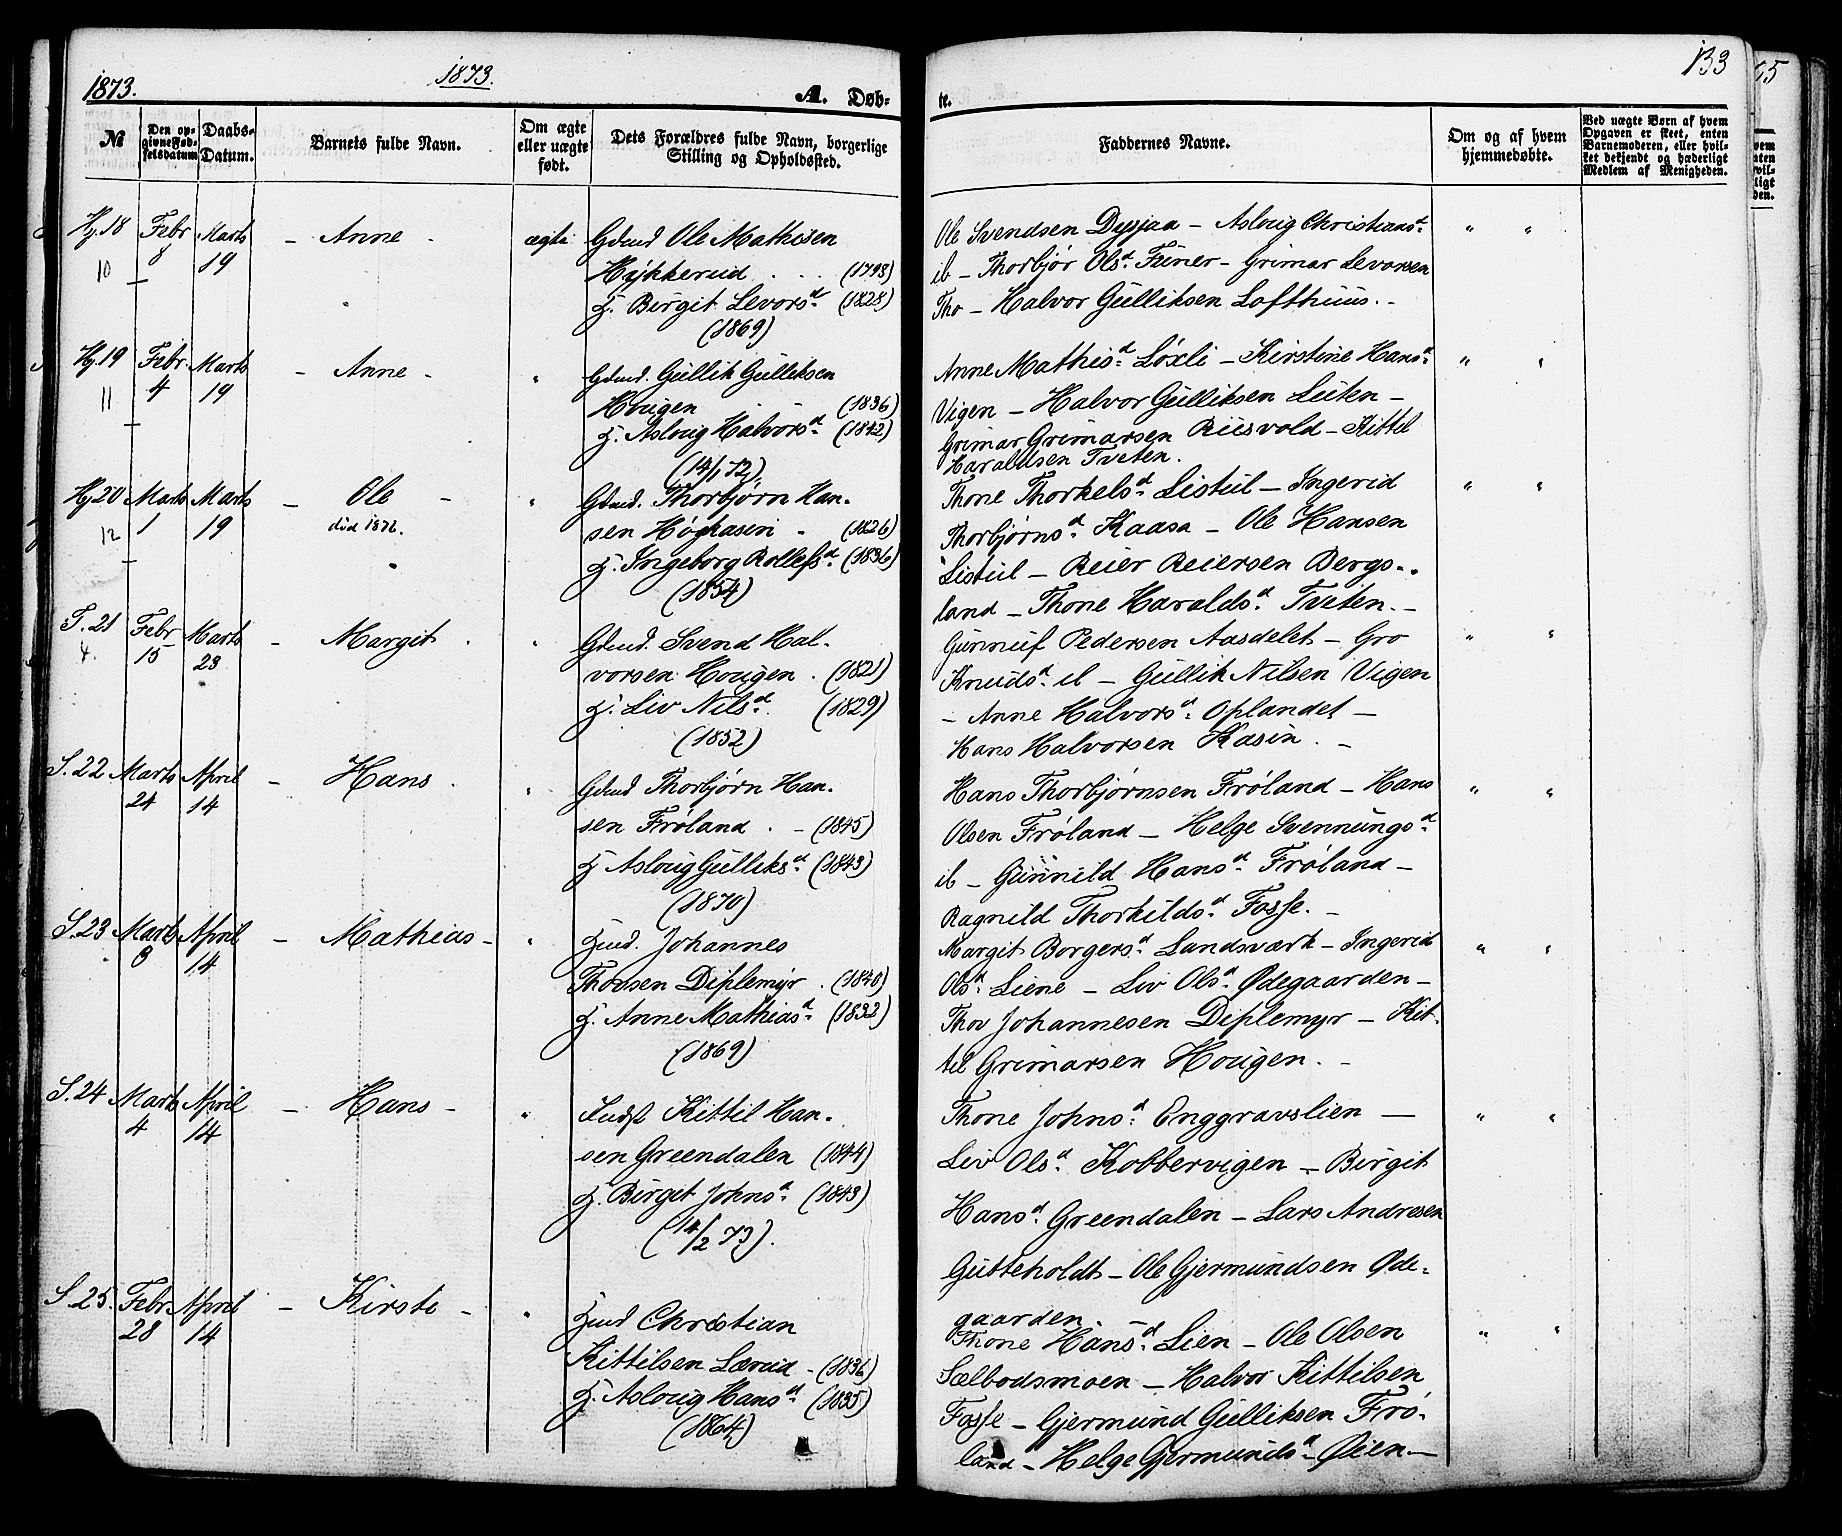 1873.
1873.
A. Døb-
te.
133
№
Den op-
givne Fød-
selsdatum
Daabs-
Datum.
Barnets fulde Navn.
Om ægte
eller uægte
født.
Dets Forældres fulde Navn, borgerlige
Stilling og Opholdssted.
Faddernes Navne.
Om og af hvem
hjemmedøbte.
Ved uægte Børn af hvem
Opgaven er skeet, enten
Barnemoderen, eller hvil-
ket bekjendt og hæderligt
Medlem af Menigheden.
Hj. 18
10
Febr
8
Marts
19
- Anne -
ægte
Gdmd Ole Mathisen
Højkkerud . . . (1798)
H. Birgit Levorsd. (1828)
(1869)
Ole Svendsen Dysjaa - Asloug Christiansd.
ib - Thorbjør Olsd. Funer - Grimar Levorsen
Tho - Halvor Gulliksen Lofthuus. -
" "
Hj. 19
11
Febr.
4
Marts
19
- Anne -
"
Gdmd. Gullik Gulliksen
Hougen - (1836)
H. Asloug Halvorsd. (1842)
(14/1 72)
Anne Mathisd. Løxli - Kirstine Hansd.
Vigen - Halvor Gulliksen Luten -
Grimar Grimarsen Riisvold - Kittel
Haraldsen Tveten.
" "
Hj. 20
12
Marts
1
Marts
19
- Ole -
død 1872.
"
Gdmd. Thorbjørn Han-
sen Høgkasin - (1826)
H. Ingeborg Rollefsd. (1836)
(1854)
Thone Thorkelsd. Listul - Ingerid
Thorbjørnsd. Kaasa - Ole Hansen
Listul - Reier Reiersen Bergs-
land - Thone Haraldsd. Tveten. -
" "
T. 21
4.
Febr
15
Marts
23
- Margit .
"
Gdmd. Svend Hal-
vorsen Hougen . (1821)
H. Liv Nilsd. (1829)
(1852)
Gunnuf Pedersen Aasdelet - Gro
Knudsd. ib - Gullik Nilsen Vigen
- Anne Halvorsd. Oplandet -
Hans Halvorsen Kasin . -
" "
S. 22
Marts
24
April
14
- Hans .
"
Gdmd Thorbjørn Han-
sen Frøland . - (1845)
H Asloug Gulliksd. (1843)
(1870)
Hans Thorbjørnsen Frøland - Hans
Olsen Frøland - Helge Svennungsd.
ib - Gunnild Hansd. Frøland -
Ragnild Thorkildsd. Fosse. -
" "
S. 23
Marts
8
April
14
- Mathias -
"
Hmd. Johannes
Thovsen Diplemyr . (1840)
H. Anne Mathiasd. (1832)
(1869)
Margit Borgersd. Landsværk - Ingerid
Olsd. Liene - Liv Olsd. Ødegaarden -
Thov Johannesen Diplemyr - Kit-
til Grimarsen Hougen. -
" "
S. 24
Marts
4
April
14
- Hans -
"
Indst Kittil Han-
sen Greendalen (1844)
H. Birget Johnsd. (1843)
(14/2 73).
Thone Johnsd. Enggravslien -
Liv Olsd. Kobbervigen - Birgit
Hansd. Greendalen - Lars Andresen
Gutteholdt - Ole Gjermundsen Øde-
gaarden.
" "
S. 25.
Febr
28
April
14
- Kirste -
"
Hmd Christian
Kittilsen Lærud - (1836)
H. Asloug Hansd. (1835)
(1864)
Thone Hansd. Lien - Ole Olsen
Sælbodsmoen - Halvor Kittilsen
Fosse - Gjermund Gulliksen Frø-
land - Helge Gjermundsd. Øien -
" "